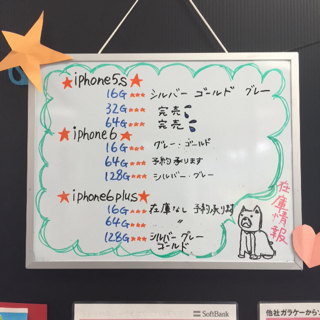 ★iphone5s★
16G★★★ シルバー ゴールド グレー
32G★★★ 完売
64G★★★ 完売
★iphone6★
16G★★★ グレー・ゴールド
64G★★★ 予約承ります
128G★★★ シルバー・グレー
★iphone6plus★
16G★★★ 在庫なし 予約承ります
64G★★★ 〃
128G★★★ シルバー グレー
ゴールド
在庫情報
SoftBank
他社ガラケーから